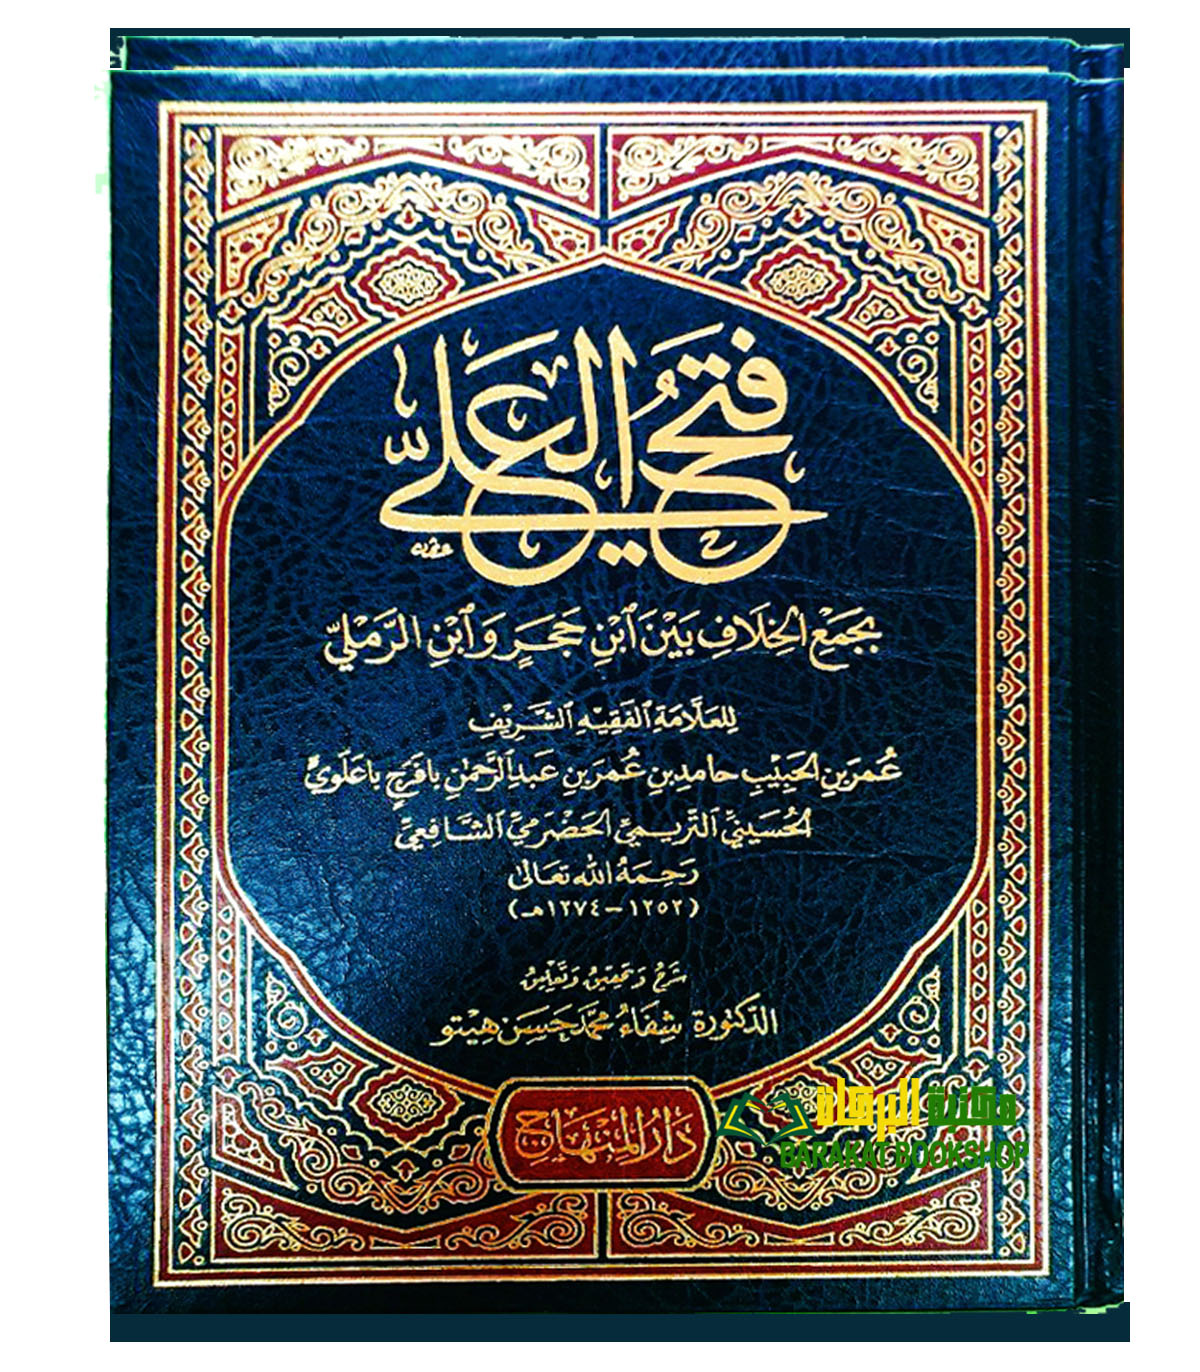 فتح العلي
بجمع الخلاف بين ابن حجر وابن الرملي
للعلامة الفقيه الشريف
عمر بن الحبيب حامد بن عمر بن عبد الرحمن بافرج باعلوي
الحسيني التريمي الحضرمي الشافعي
رحمه الله تعالى
(١٢٥٢-١٢٧٤هـ)
شرح وتحقيق وتعليق
الدكتورة شفاء محمد حسن هيتو
دار المنهاج
مكتبة البركات
BARAKAT BOOKSHOP